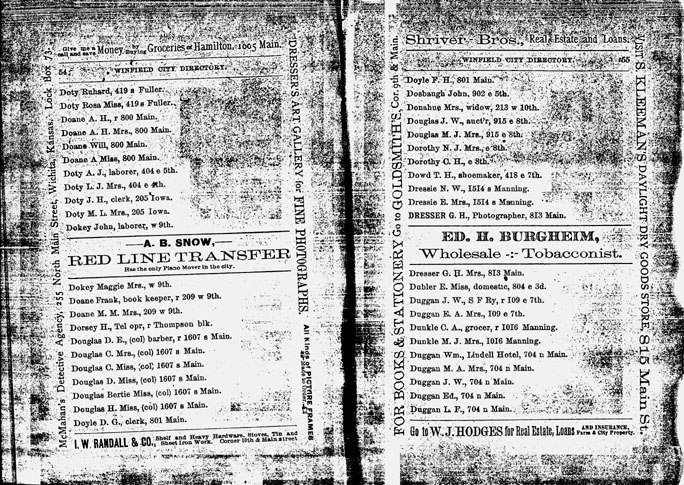 Give me a call and save Money by Buying Groceries of Hamilton, 1005 Main.
54 WINFIELD CITY DIRECTORY.
Doty Ruhard, 419 s Fuller.
Doty Rosa Miss, 419 s Fuller.
Doane A. H., r 800 Main.
Doane A. H. Mrs., 800 Main.
Doane Will, 800 Main.
Doane A Miss, 800 Main.
Doty A. J., laborer, 404 e 5th.
Doty L. J. Mrs., 404 e
Doty J. H., clerk, 205 Iowa.
Doty M. L. Mrs., 205 Iowa.
Dokey John, laborer, w 9th.
—A. B. SNOW,—
RED LINE TRANSFER
Has the only Piano Mover in the city.
Dokey Maggie Mrs., w 9th.
Doane Frank, book keeper, r 209 w 9th.
Doane M. M. Mrs., 209 w 9th.
Dorsey H., Tel opr, r Thompson blk.
Douglas D. E., (col) barber, r 1607 s Main.
Douglas C. Mrs., (col) 1607 s Main.
Douglas C. Miss, (col) 1607 s Main.
Douglas D. Miss, (col) 1607 s Main.
Douglas Bertie Miss, (col) 1607 s Main.
Douglas H. Miss, (col) 1607 s Main.
Doyle D. G., clerk, 801 Main.
I. W. RANDALL & CO., Shelf and Heavy Hardware, Stoves, Tin and Sheet Iron Work. Corner 10th & Main street
McMahan's Detective Agency, 255 North Main Street, Wichita, Kansas. Lock Box 73.
DRESSER'S ART GALLERY for FINE PHOTOGRAPHS.
All Kinds of PICTURE FRAMES
Shriver Bros., Real Estate and Loans.
WINFIELD CITY DIRECTORY. 55
Doyle F. H., 801 Main.
Dosbaugh John, 902 e 5th.
Donahue Mrs., widow, 213 w 10th.
Douglas J. W., auct'r, 915 e 8th.
Douglas M. J. Mrs., 915 e 8th.
Dorothy N. J. Mrs., e 8th.
Dorothy C. H., e 8th.
Dowd T. H., shoemaker, 418 e 7th.
Dressie N. W., 1514 s Manning.
Dressie E. Mrs., 1514 s Manning.
DRESSER G. H., Photographer, 813 Main.
ED. H. BURGHEIM,
Wholesale -:- Tobacconist.
Dresser G. H. Mrs., 813 Main.
Dubler E. Miss, domestic, 804 e 3d.
Duggan J. W., S F Ry, r 109 e 7th.
Duggan E. A. Mrs., 109 e 7th.
Dunkle C. A., grocer, r 1016 Manning.
Dunkle M. J. Mrs., 1016 Manning.
Duggan Wm., Lindell Hotel, 704 n Main.
Duggan M. A. Mrs., 704 n Main.
Duggan J. W., 704 n Main.
Duggan Ed., 704 n Main.
Duggan L. F., 704 n Main.
Go to W. J. HODGES for Real Estate, Loans AND INSURANCE, Farm & City Property.
FOR BOOKS & STATIONERY Go to GOLDSMITH'S, Cor. 9th & Main.
VISIT S. KLEEMAN'S DAYLIGHT DRY GOODS STORE, 815 Main St.